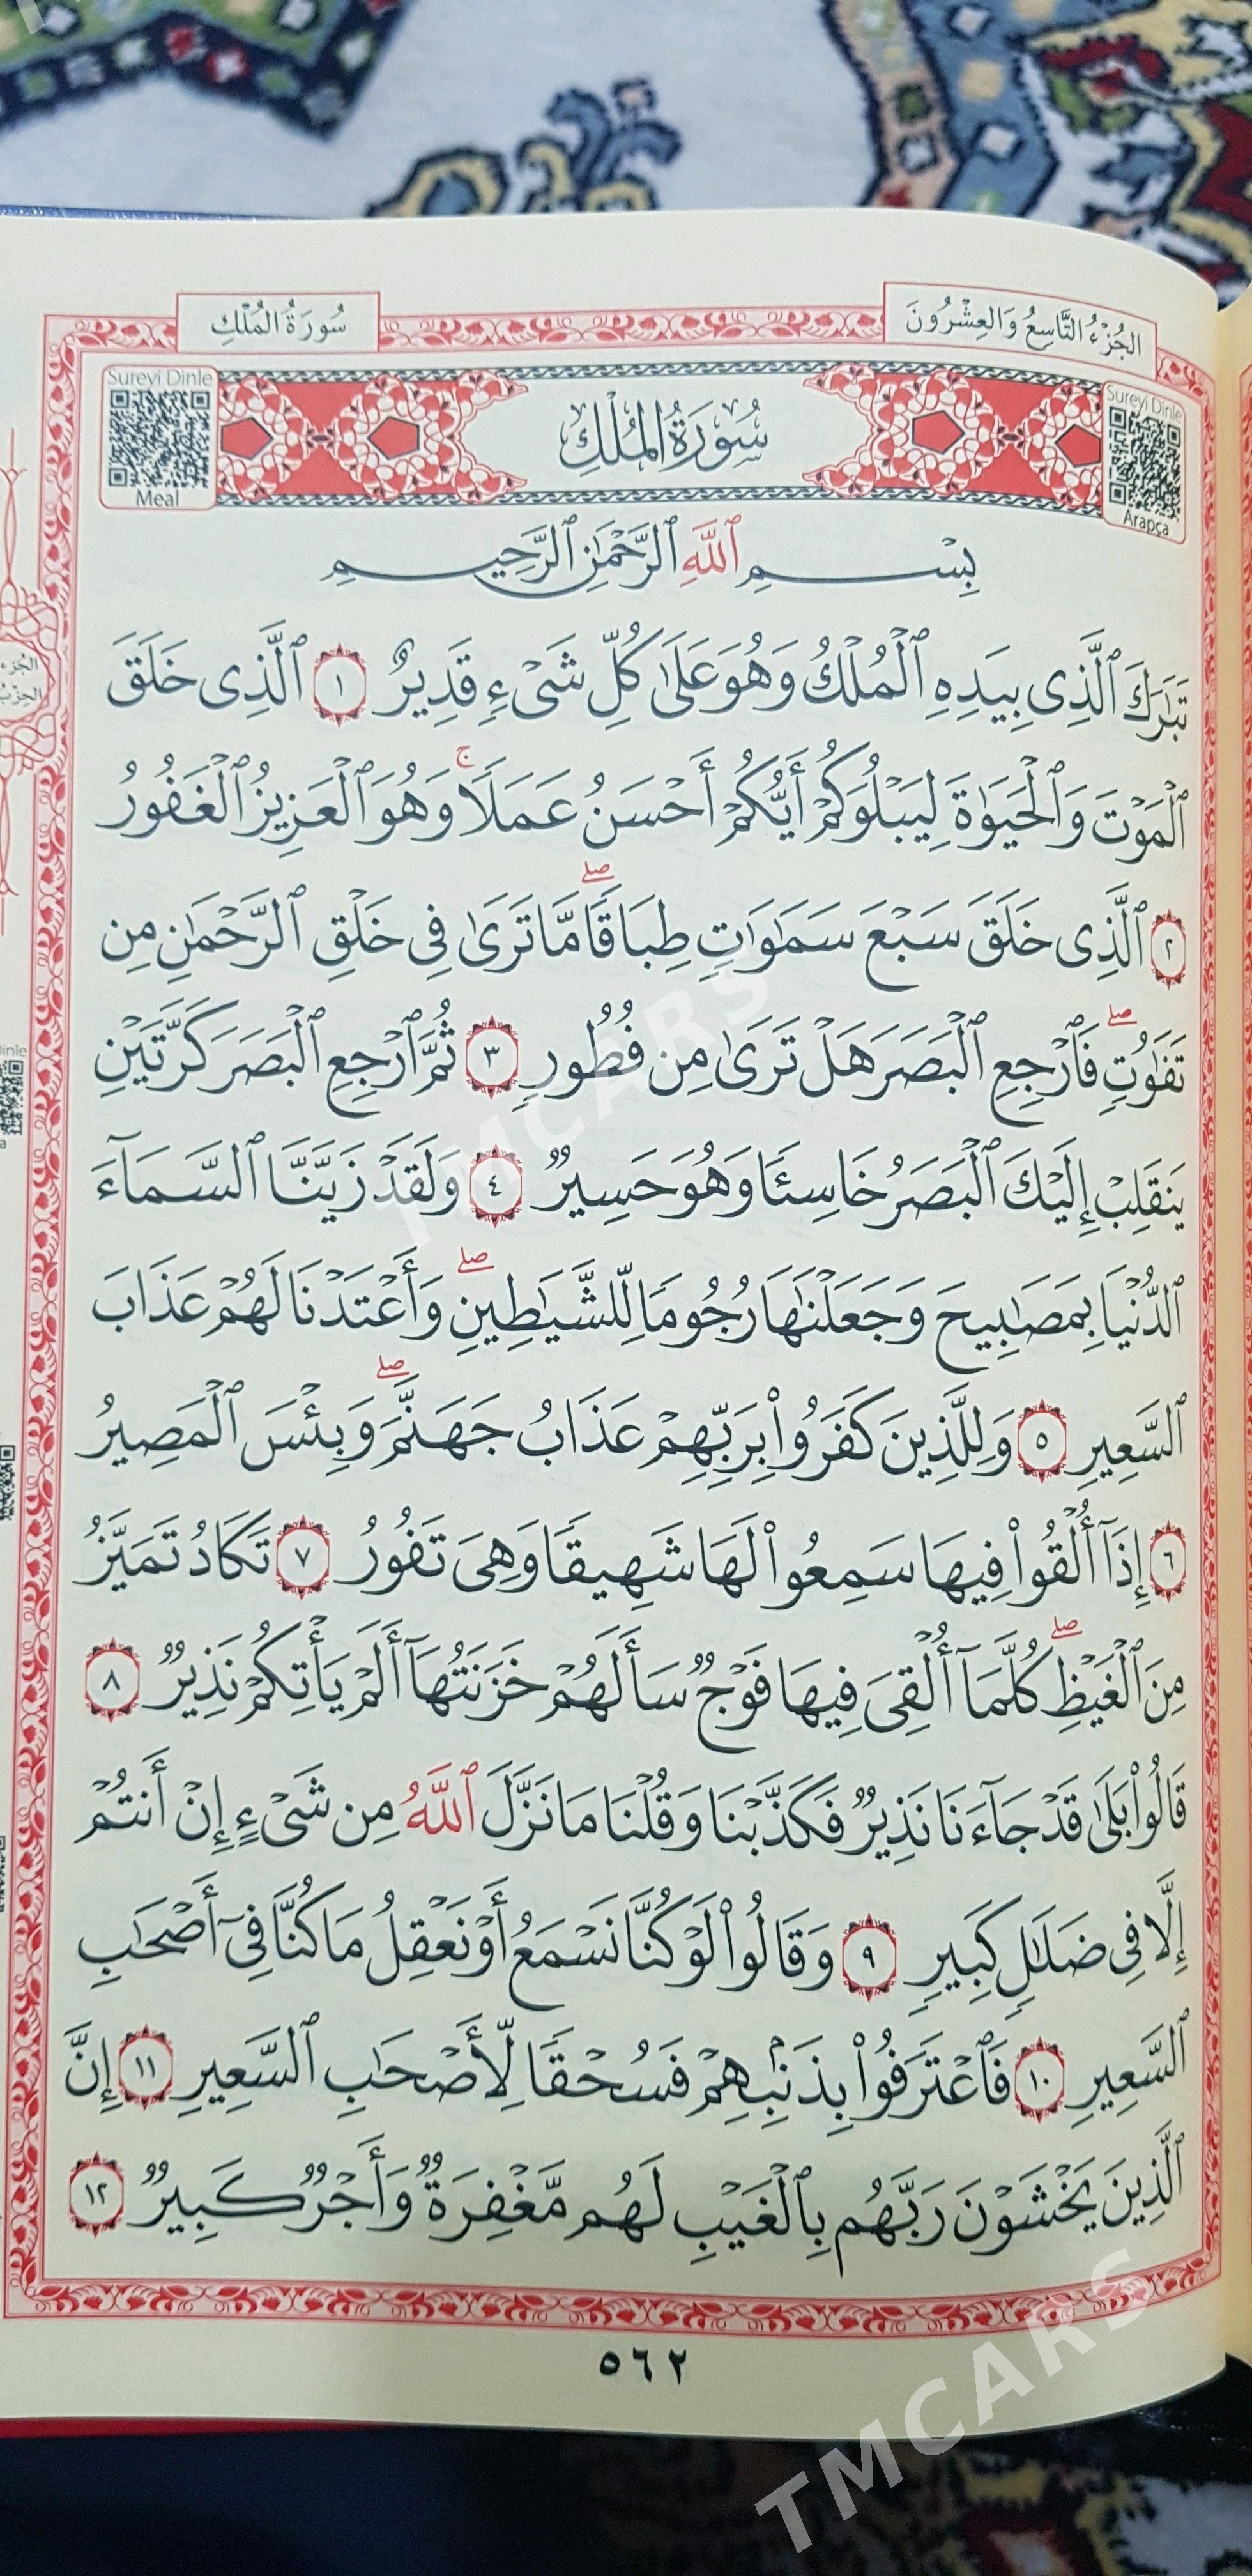 الجُزْءُ التَّاسِعُ وَالعِشْرُونَ
سُورَةُ المُلْكِ
Sureyi Dinle
Arapça
سُورَةُ المُلْكِ
Sureyi Dinle
Meal
بِسْمِ ٱللَّهِ ٱلرَّحْمَٰنِ ٱلرَّحِيمِ
تَبَٰرَكَ ٱلَّذِى بِيَدِهِ ٱلْمُلْكُ وَهُوَ عَلَىٰ كُلِّ شَىْءٍ قَدِيرٌ ١ ٱلَّذِى خَلَقَ
ٱلْمَوْتَ وَٱلْحَيَوٰةَ لِيَبْلُوَكُمْ أَيُّكُمْ أَحْسَنُ عَمَلًا ۚ وَهُوَ ٱلْعَزِيزُ ٱلْغَفُورُ
٢ ٱلَّذِى خَلَقَ سَبْعَ سَمَٰوَٰتٍ طِبَاقًا ۖ مَّا تَرَىٰ فِى خَلْقِ ٱلرَّحْمَٰنِ مِن
تَفَٰوُتٍ ۖ فَٱرْجِعِ ٱلْبَصَرَ هَلْ تَرَىٰ مِن فُطُورٍ ٣ ثُمَّ ٱرْجِعِ ٱلْبَصَرَ كَرَّتَيْنِ
يَنقَلِبْ إِلَيْكَ ٱلْبَصَرُ خَاسِئًا وَهُوَ حَسِيرٌ ٤ وَلَقَدْ زَيَّنَّا ٱلسَّمَآءَ
ٱلدُّنْيَا بِمَصَٰبِيحَ وَجَعَلْنَٰهَا رُجُومًا لِّلشَّيَٰطِينِ ۖ وَأَعْتَدْنَا لَهُمْ عَذَابَ
ٱلسَّعِيرِ ٥ وَلِلَّذِينَ كَفَرُوا۟ بِرَبِّهِمْ عَذَابُ جَهَنَّمَ ۖ وَبِئْسَ ٱلْمَصِيرُ
٦ إِذَآ أُلْقُوا۟ فِيهَا سَمِعُوا۟ لَهَا شَهِيقًا وَهِىَ تَفُورُ ٧ تَكَادُ تَمَيَّزُ
مِنَ ٱلْغَيْظِ ۖ كُلَّمَآ أُلْقِىَ فِيهَا فَوْجٌ سَأَلَهُمْ خَزَنَتُهَآ أَلَمْ يَأْتِكُمْ نَذِيرٌ ٨
قَالُوا۟ بَلَىٰ قَدْ جَآءَنَا نَذِيرٌ فَكَذَّبْنَا وَقُلْنَا مَا نَزَّلَ ٱللَّهُ مِن شَىْءٍ إِنْ أَنتُمْ
إِلَّا فِى ضَلَٰلٍ كَبِيرٍ ٩ وَقَالُوا۟ لَوْ كُنَّا نَسْمَعُ أَوْ نَعْقِلُ مَا كُنَّا فِىٓ أَصْحَٰبِ
ٱلسَّعِيرِ ١٠ فَٱعْتَرَفُوا۟ بِذَنۢبِهِمْ فَسُحْقًا لِّأَصْحَٰبِ ٱلسَّعِيرِ ١١ إِنَّ
ٱلَّذِينَ يَخْشَوْنَ رَبَّهُم بِٱلْغَيْبِ لَهُم مَّغْفِرَةٌ وَأَجْرٌ كَبِيرٌ ١٢
٥٦٢
TMCARS
TMCARS